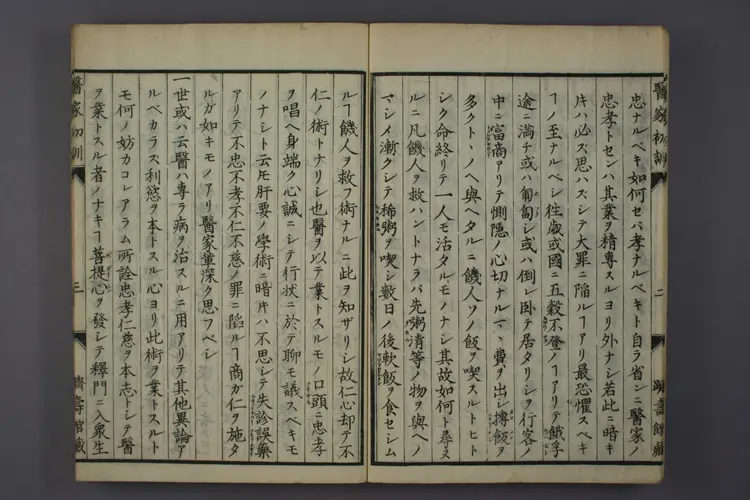 醫家初訓
忠ナルベキ如何セバ孝ナルベキト自ラ省ンニ醫家ノ
忠孝トセンハ其業ヲ精專スルヨリ外ナシ若此ニ暗キ
片ハ必ズ思ハズシテ大罪ニ陥ルヿアリ最恐懼スベキ
ヿノ至ナルベシ徃歳或國ニ五穀不登ノヿアリテ餓孚
途ニ満チ或ハ匍匐シ或ハ倒レ卧テ居タリシヲ行客ノ
中ニ富商アリテ惻隠ノ心切ナルマヽ費ヲ出シ摶飯ヲ
多クトヽノヘ與ヘタルニ饑人ソノ飯ヲ喫スルトヒト
シク命終リテ一人モ活タルモノナシ其故如何ト尋ヌ
ルニ凡饑人ヲ救ハントナラバ先粥清等ノ物ヲ與ヘノ
マシメ漸クシテ稀粥ヲ喫シ數日ノ後軟飯ヲ食セシム
二
躋壽館藏
ルヿ饑人ヲ救フ術ナルニ此ヲ知ザリシ故仁心却テ不
仁ノ術トナリシ也醫ヲ以テ業トスルモノ口頭ニ忠孝
ヲ唱ヘ身端ク心誠ニシテ行状ニ於テ聊モ議スベキモ
ノナシト云モ肝要ノ學術ニ暗キハ不思シテ失診誤藥
アリテ不忠不孝不仁不慈ノ罪ニ陷ルヿ商ガ仁ヲ施タ
ルガ如キモノアリ醫家輩深ク思フベシ
一世或ハ云醫ハ專ラ病ヲ治スルニ用アリテ其他異論ア
ルベカラズ利慾ヲ本トスル心ヨリ此術ヲ業トスルト
モ何ノ妨カコレアラム所詮忠孝仁慈ヲ本志トシテ醫
ヲ業トスル者ノナキヿ菩提心ヲ發シテ釋門ニ入衆生
醫家初訓
三
躋壽館藏